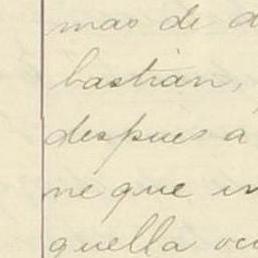 mas de
bastian,
despues a
ne que
quella